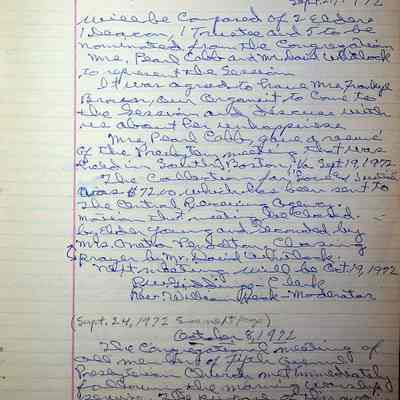 Sept. 24, 1972
will be Composed of 2 Elders
1 deacon, 1 Trustee and 5 to be
nominated from the Congregation.
Mrs. Pearl Cabb and Mr. David Whitlock
to represent the Session
It was agreed to have Mrs.
our Organist to Come to
the Session and discuss with
us about her
Mrs. Pearl Cabb, gave a
of the Presbytery meeting that was
held in South Boston, Va. Sept 19, 1972
The Collection for
was $72.00 which has been sent to
the Central Receiving Agency.
motion that meeting be Closed.
by Elder Young and Seconded by
Mrs. Pendleton, Closing
prayer by Mr. David Whitlock.
Next meeting will be Oct. 19, 1972
- Clerk
Rev. William - Moderator
(Sept. 24, 1972 page)
October 8, 1972
The Congregational meeting of
all members of Fifth
Presbyterian Church met immediately
following the morning worship
Service. The purpose of this was